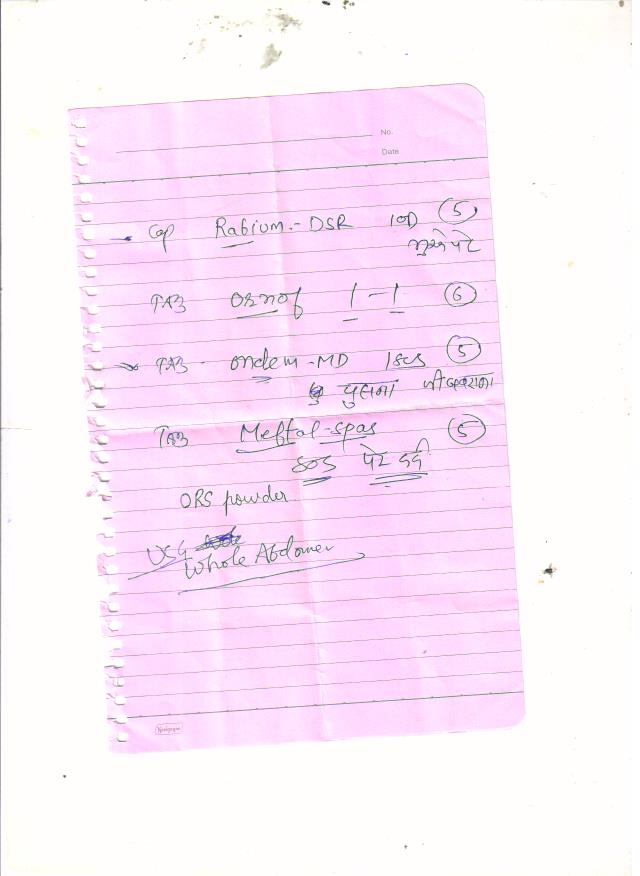 No.
Date
Cap Rabium-DSR 1OD 5
TAB ornof 1-1 6
TAB ondem-MD 1SOS 5
TAB Meftal-spas 5
SOS पेट दर्द
ORS powder
USG
Whole Abdomen